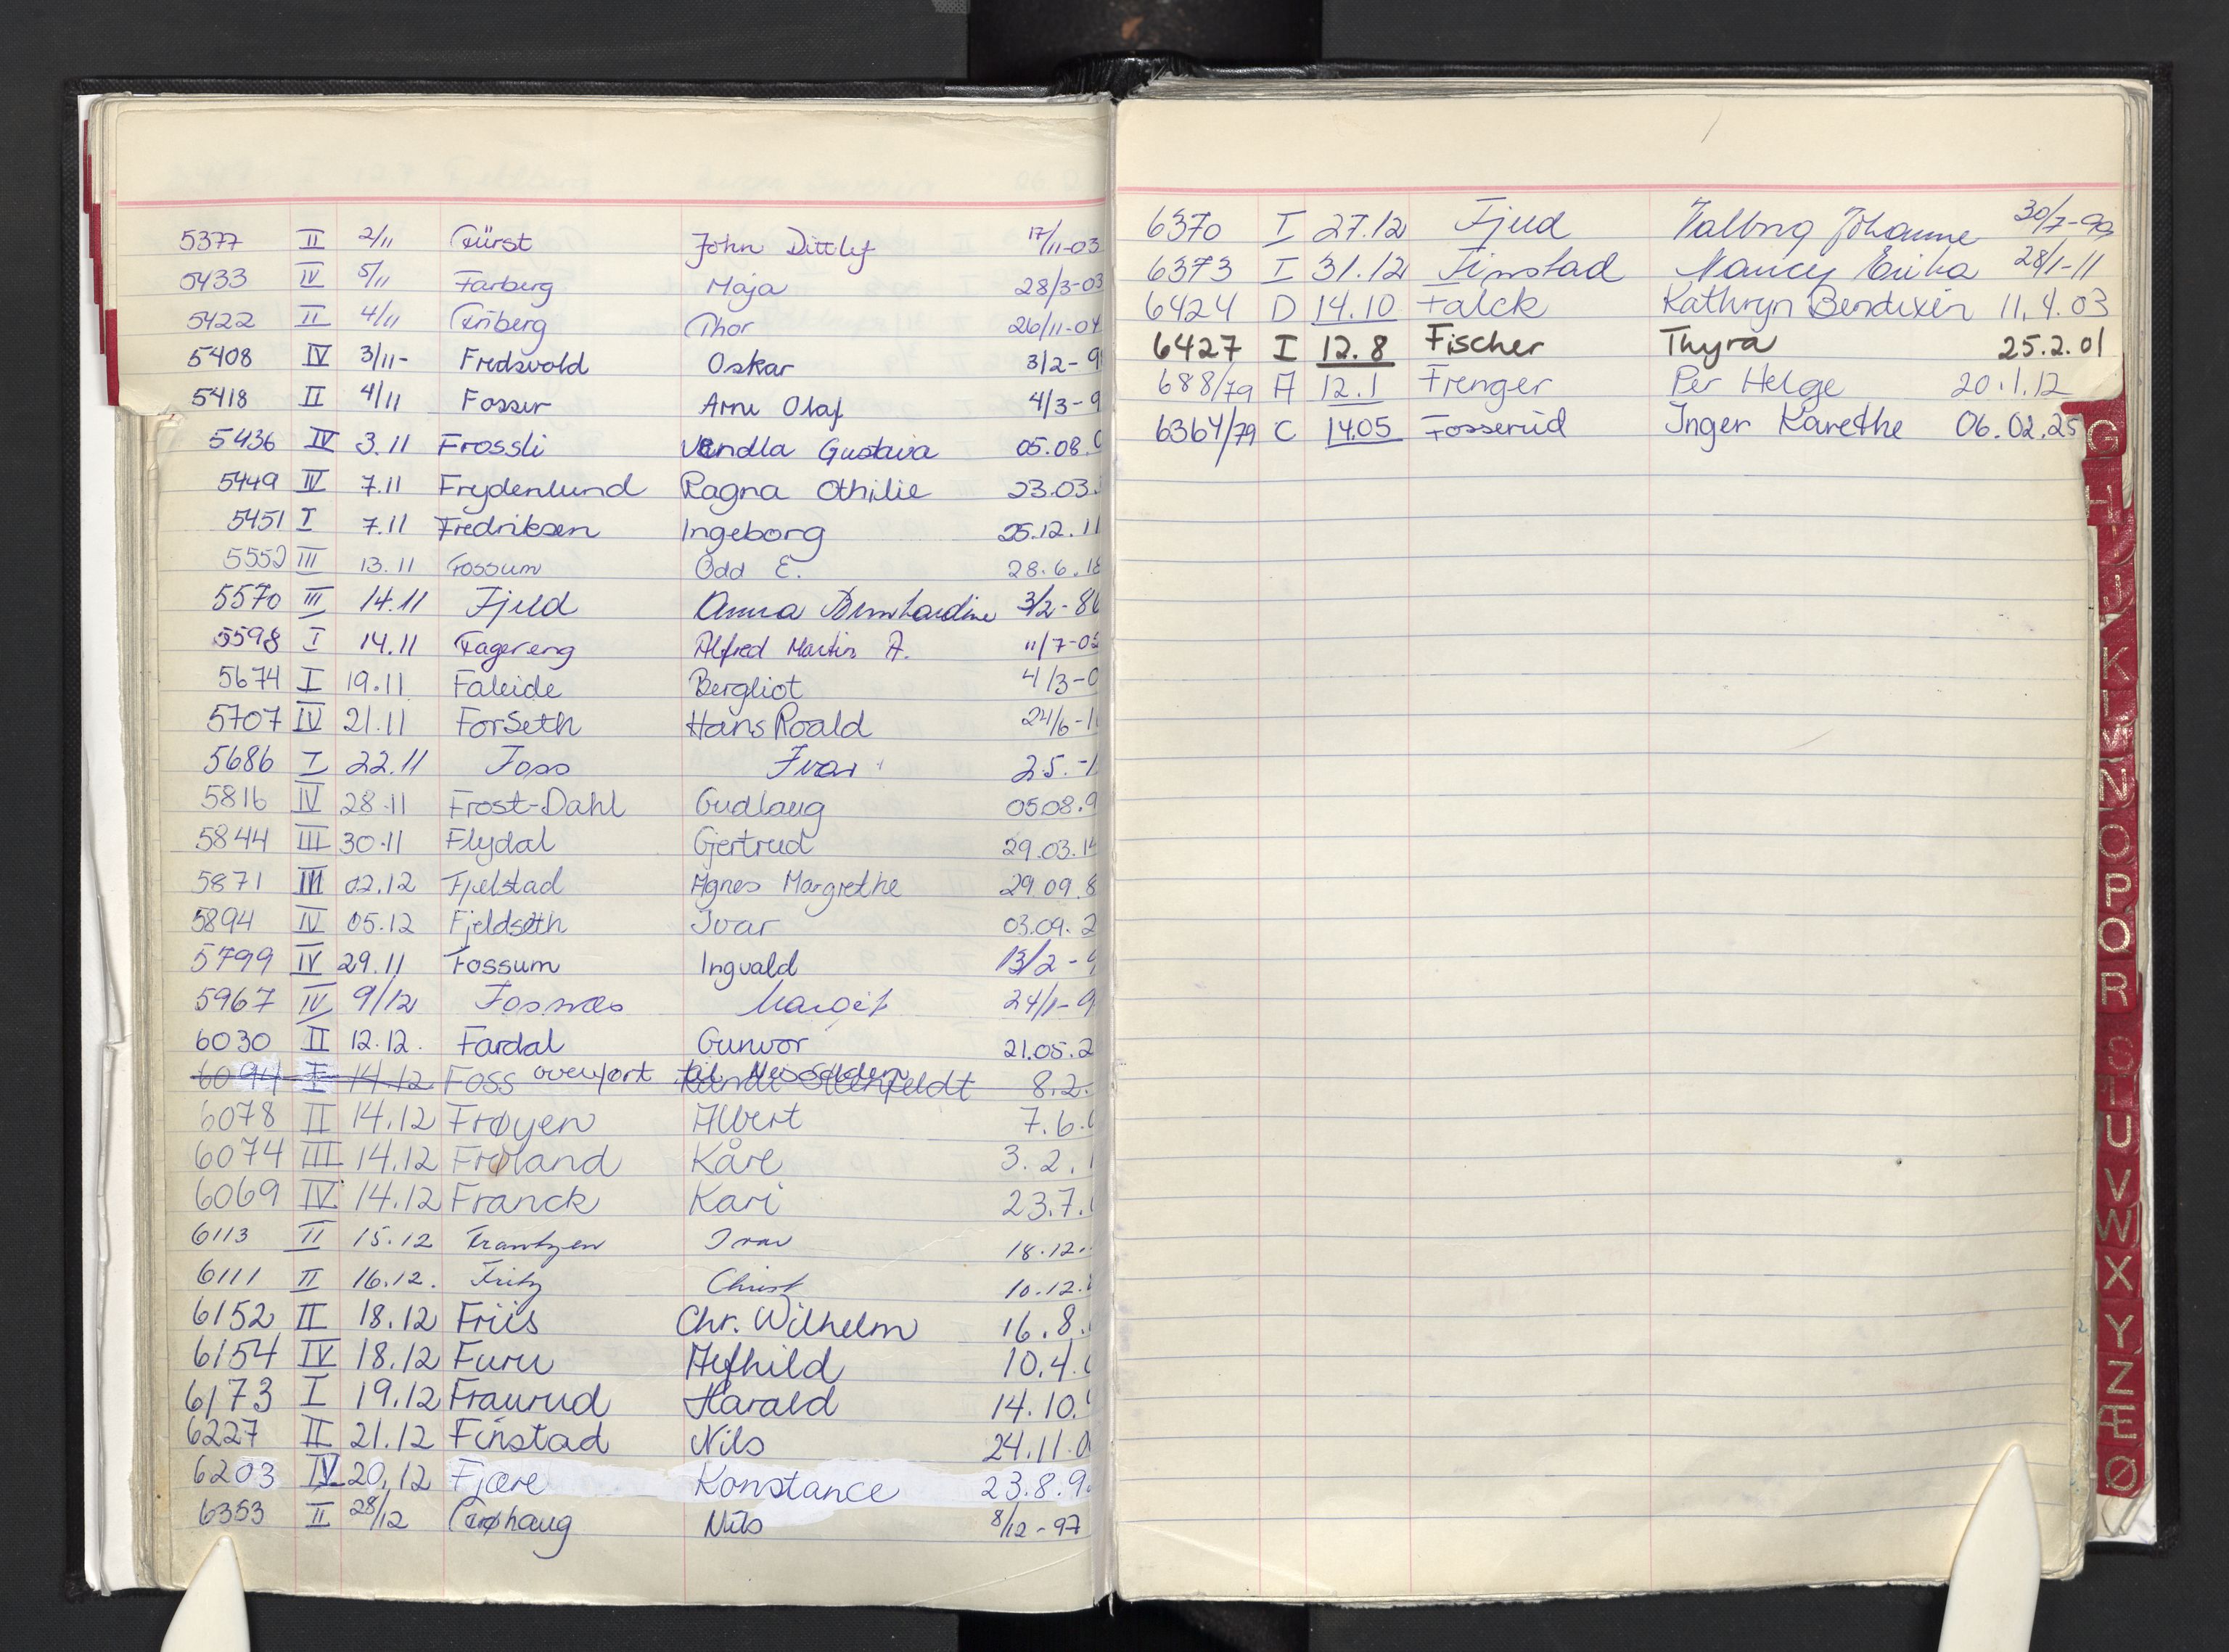 5377 II 2/11 Fürst John Dittlef 17/11-03
5433 IV 5/11 Farberg Maja 28/3-03
5422 II 4/11 Friberg Thor 26/11-04
5408 IV 3/11- Fredsvold Oskar 3/2-9
5418 II 4/11 Fosser Arne Olaf 4/3-9
5436 IV 3.11 Frossli Vendla Gustava 05.08.0
5449 IV 7.11 Frydenlund Ragna Othilie 23.03.
5451 I 7.11 Fredriksen Ingeborg 25.12.11
5552 III 13.11 Fossum Odd E. 28.6.18
5570 III 14.11 Fjeld Anna Bernhardine 3/2-86
5598 I 14.11 Fagereng Alfred Martin A. 11/7-05
5674 I 19.11 Faleide Bergliot 4/3-0
5707 IV 21.11 Forseth Hans Roald 24/6-1
5686 I 22.11 Foss Ivar 25.-1
5816 IV 28.11 Frost-Dahl Gudlaug 05.08.9
5844 III 30.11 Flydal Gjertrud 29.03.14
5871 III 02.12 Fjelstad Agnes Margrethe 29.09.8
5894 IV 05.12 Fjeldseth Ivar 03.09.2
5799 IV 29.11 Fossum Ingvald 13/2-9
5967 IV 9/12 Fosnæs Margit 24/1-9
6030 II 12.12. Fardal Gunvor 21.05.2
6094 I 14.12 Foss overført til 8.2.
6078 II 14.12 Frøyen Albert 7.6.0
6074 III 14.12 Frøland Kåre 3.2.1
6069 IV 14.12 Franck Kari 23.7.
6113 II 15.12 Frantzen Ivar 18.12.
6111 II 16.12. Fritz Christ 10.12.
6152 II 18.12 Friis Chr. Wilhelm 16.8.
6154 IV 18.12 Furu Alfhild 10.4.0
6173 I 19.12 Fraurud Harald 14.10.
6227 II 21.12 Finstad Nils 24.11.0
6203 IV 20.12 Fjære Konstance 23.8.9
6353 II 28/12 Nils 8/12-97
6370 I 27.12 Fjeld Valborg Johanne 30/7-99
6373 I 31.12 Finstad Nancy Erika 28/1-11
6424 D 14.10 Falck Kathryn Bendixen 11.4.03
6427 I 12.8 Fischer Thyra 25.2.01
688/79 A 12.1 Frenger Per Helge 20.1.12
6364/79 C 14.05 Fosserud Inger Karethe 06.02.25
G
H
I
J
K
L
M
N
O
P
Q
R
S
T
U
V
W
X
Y
Z
Æ
Ø